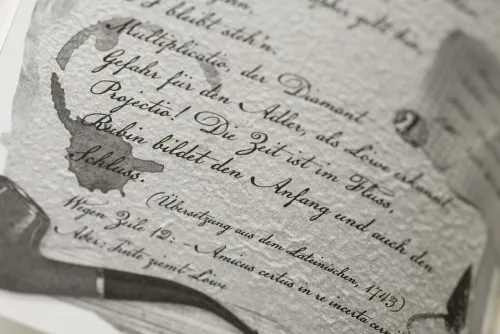 bleibt steh'n.
Multiplicatio, der Diamant
Gefahr für den Adler, als Löwe erkannt
Projectio! Die Zeit ist im Fluss,
Rubin bildet den Anfang und auch den
Schluss.
(Übersetzung aus dem Lateinischen, 1743)
Wegen Zeile 12: - Amicus certus in re incerta
Ader: Tinte ziemt Löwe